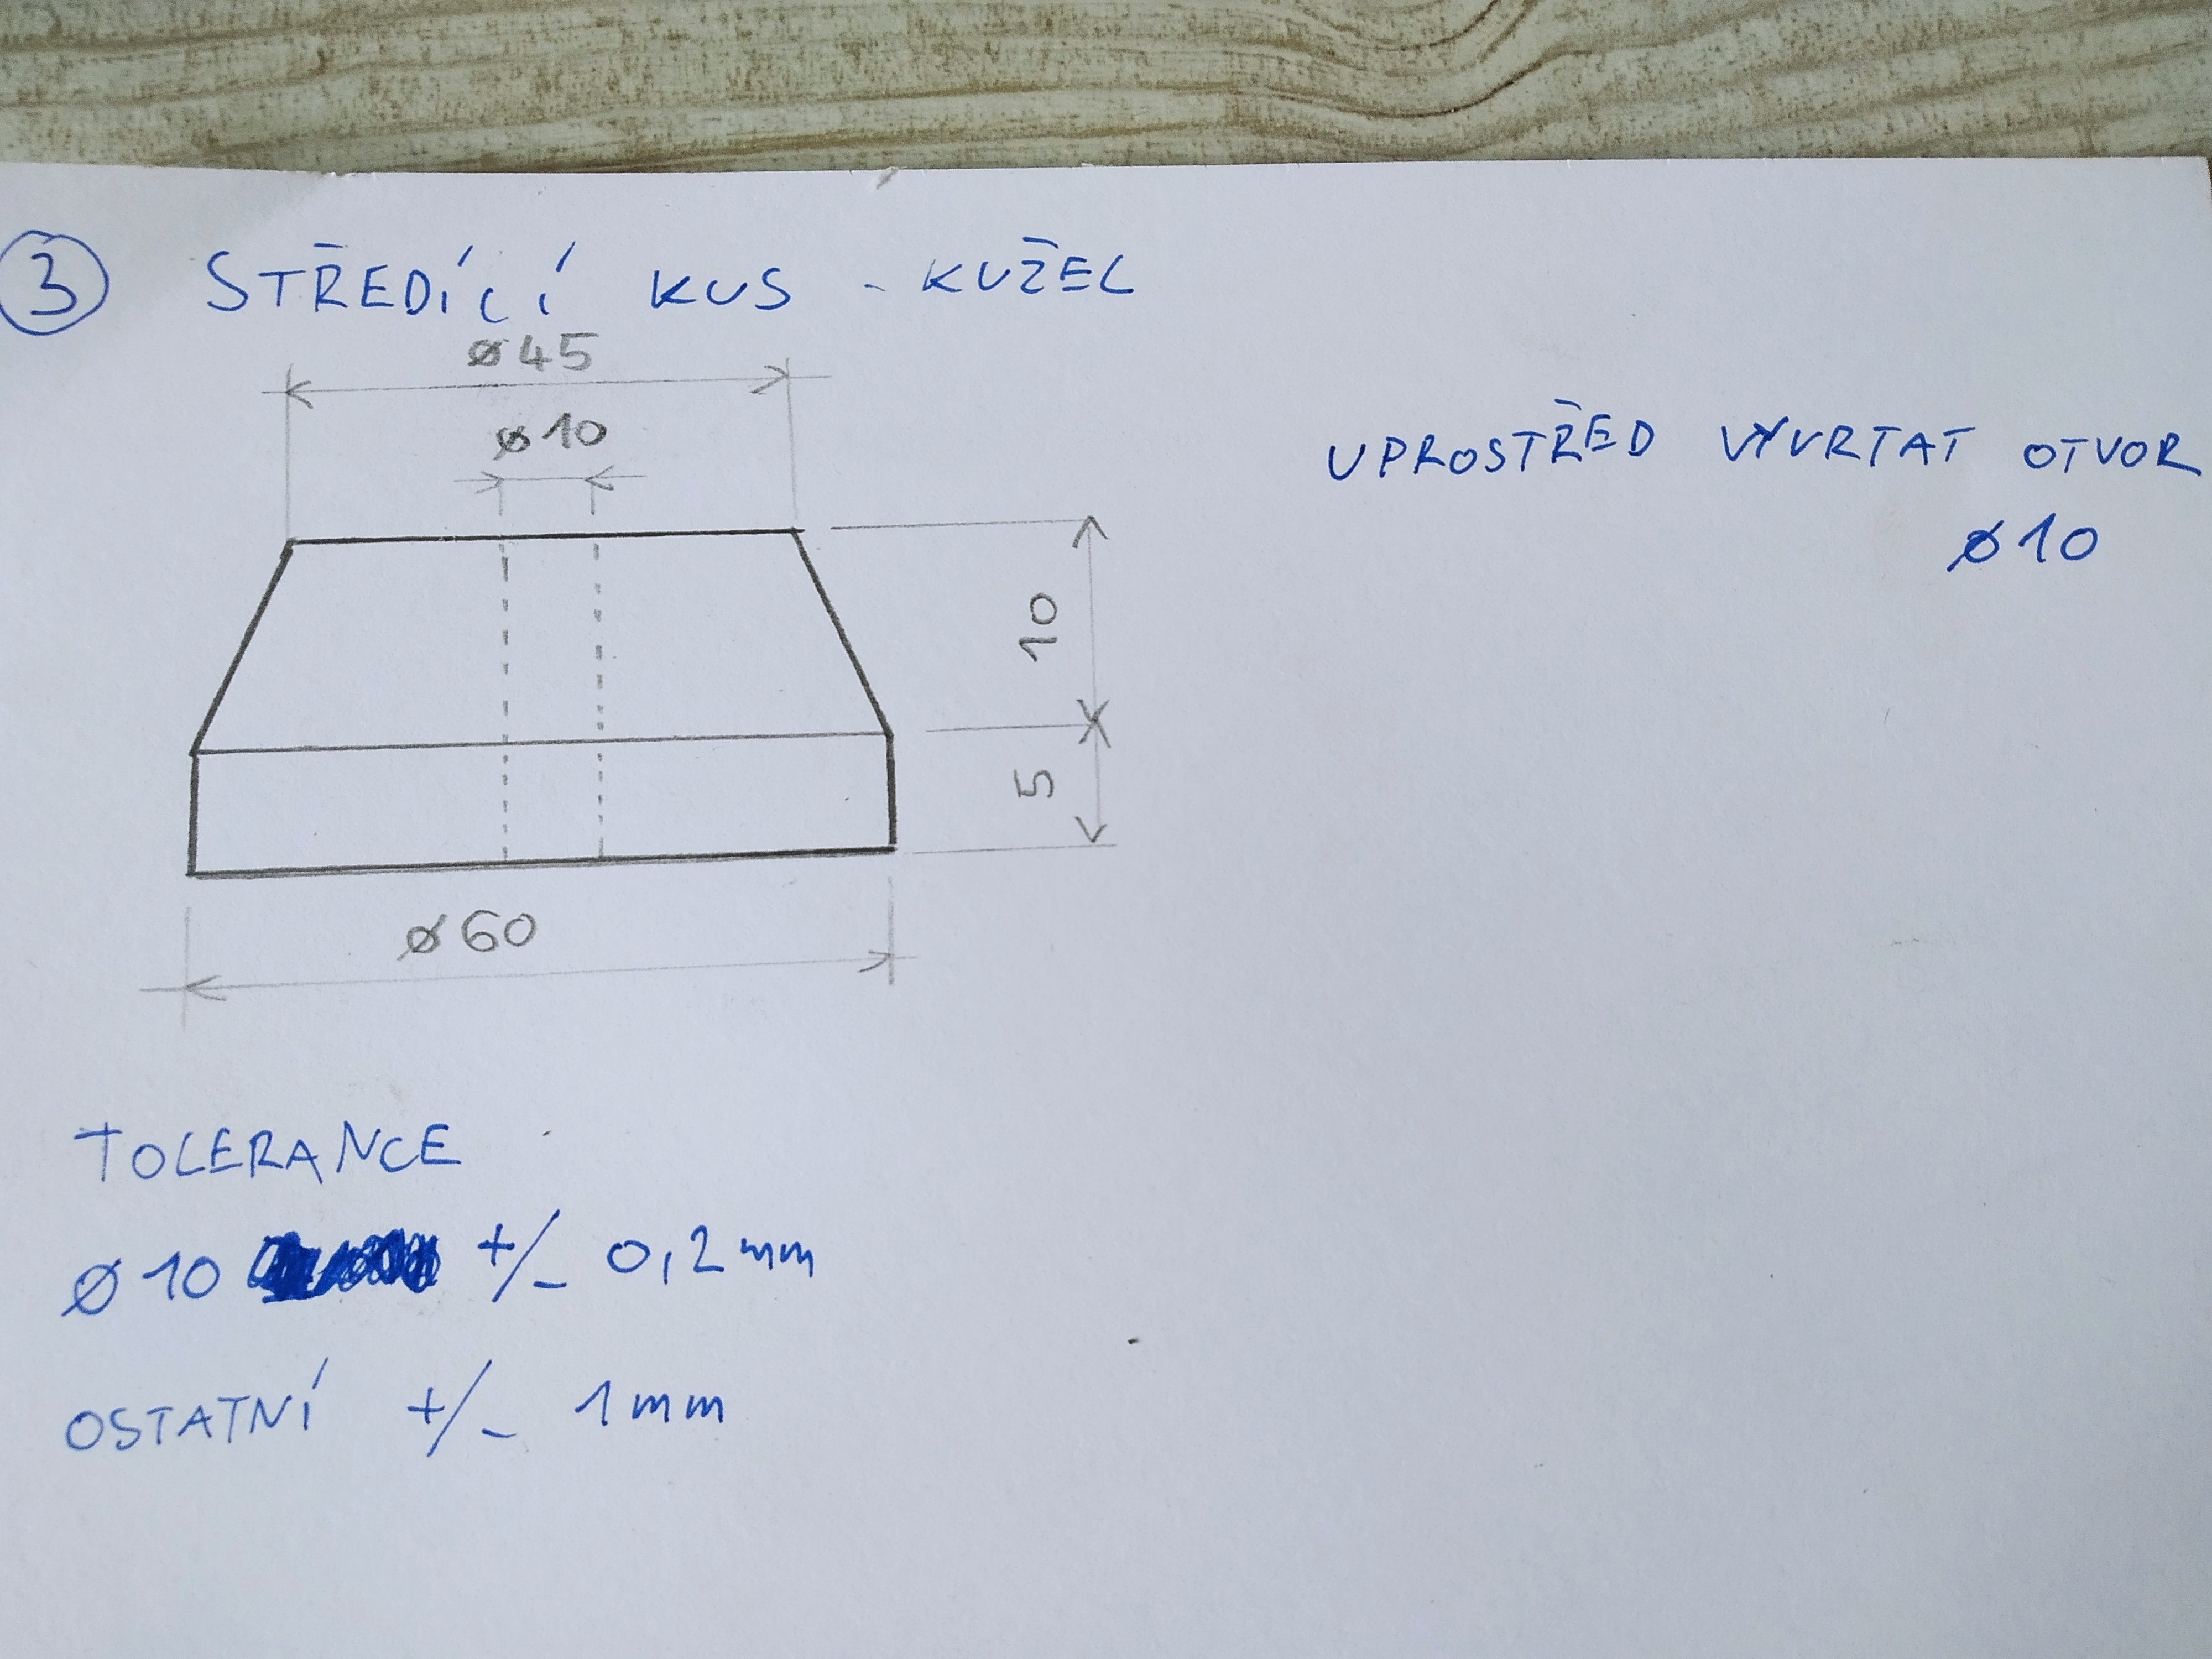 3 STŘEDÍCÍ KUS - KUŽEL
⌀45
⌀10
UPROSTŘED VYVRTAT OTVOR
⌀10
10
5
⌀60
TOLERANCE
⌀10 +/- 0,2mm
OSTATNÍ +/- 1mm